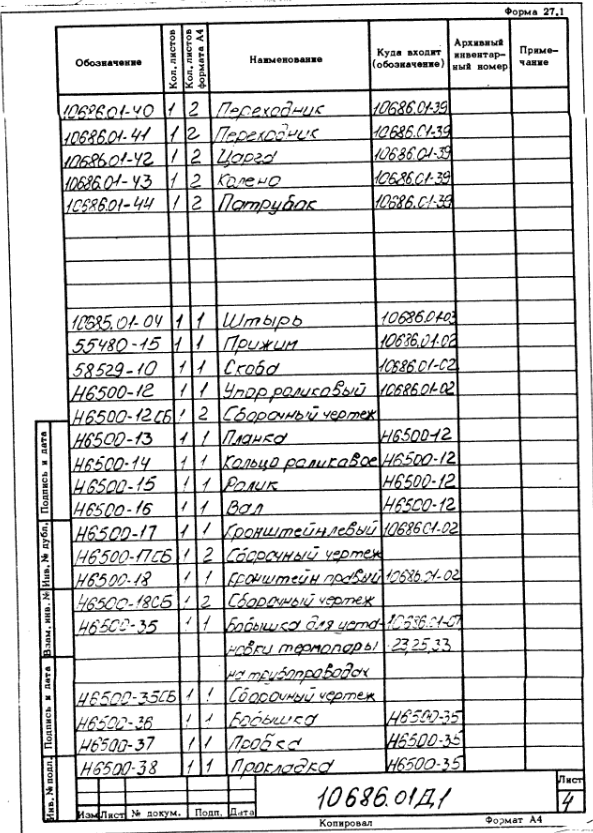 Форма 27.1
Обозначение Кол. листов Кол. листов формата А4 Наименование Куда входит (обозначение) Архивный инвентарный номер Примечание
10686.01-40 1 2 Переходник 10686.01-39
10686.01-41 1 2 Переходник 10686.01-39
10686.01-42 1 2 Царга 10686.01-39
10686.01-43 1 2 Колено 10686.01-39
10686.01-44 1 2 Патрубок 10686.01-39
10685.01-04 1 1 Штырь 10686.01-03
55480-15 1 1 Прижим 10686.01-02
58529-10 1 1 Скоба 10686.01-02
Н6500-12 1 1 Упор роликовый 10686.01-02
Н6500-12СБ 1 2 Сборочный чертеж
Н6500-13 1 1 Планка Н6500-12
Н6500-14 1 1 Кольцо роликовое Н6500-12
Н6500-15 1 1 Ролик Н6500-12
Н6500-16 1 1 Вал Н6500-12
Н6500-17 1 1 Кронштейн левый 10686.01-02
Н6500-17СБ 1 2 Сборочный чертеж
Н6500-18 1 1 Кронштейн правый 10686.01-02
Н6500-18СБ 1 2 Сборочный чертеж
Н6500-35 1 1 Бобышка для уста- 10686.01-07
новки термопары 23,25,33
на трубопроводах
Н6500-35СБ 1 1 Сборочный чертеж
Н6500-36 1 1 Бобышка Н6500-35
Н6500-37 1 1 Пробка Н6500-35
Н6500-38 1 1 Прокладка Н6500-35
Инв. № подл. Подпись и дата Взам. инв. № Инв. № дубл. Подпись и дата
Изм Лист № докум. Подп. Дата
10686.01Д1
Лист
4
Копировал Формат А4